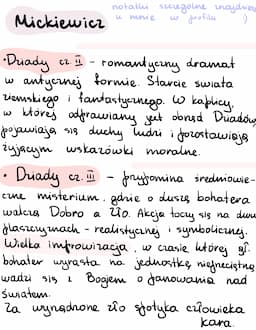 notatki szczególne znajdziesz
u mnie w profilu )
Mickiewicz
• Dziady cz. II - romantyczny dramat
w antycznej formie. Starcie świata
ziemskiego i fantastycznego. W kaplicy,
w której odprawiany jest obrzęd Dziadów,
pojawiają się duchy ludzi i pozostawiają
żyjącym wskazówki moralne.
• Dziady cz. III - przypomina średniowie-
czne misterium, gdzie o duszę bohatera
walczą Dobro a Zło. Akcja toczy się na dwu
płaszczyznach - realistycznej i symbolicznej.
Wielka improwizacja, w czasie której gł.
bohater wyrasta na jednostkę nieprzeciętną
wadzi się z Bogiem o panowanie nad
światem.
Za wyrządzone zło spotyka człowieka
kara.